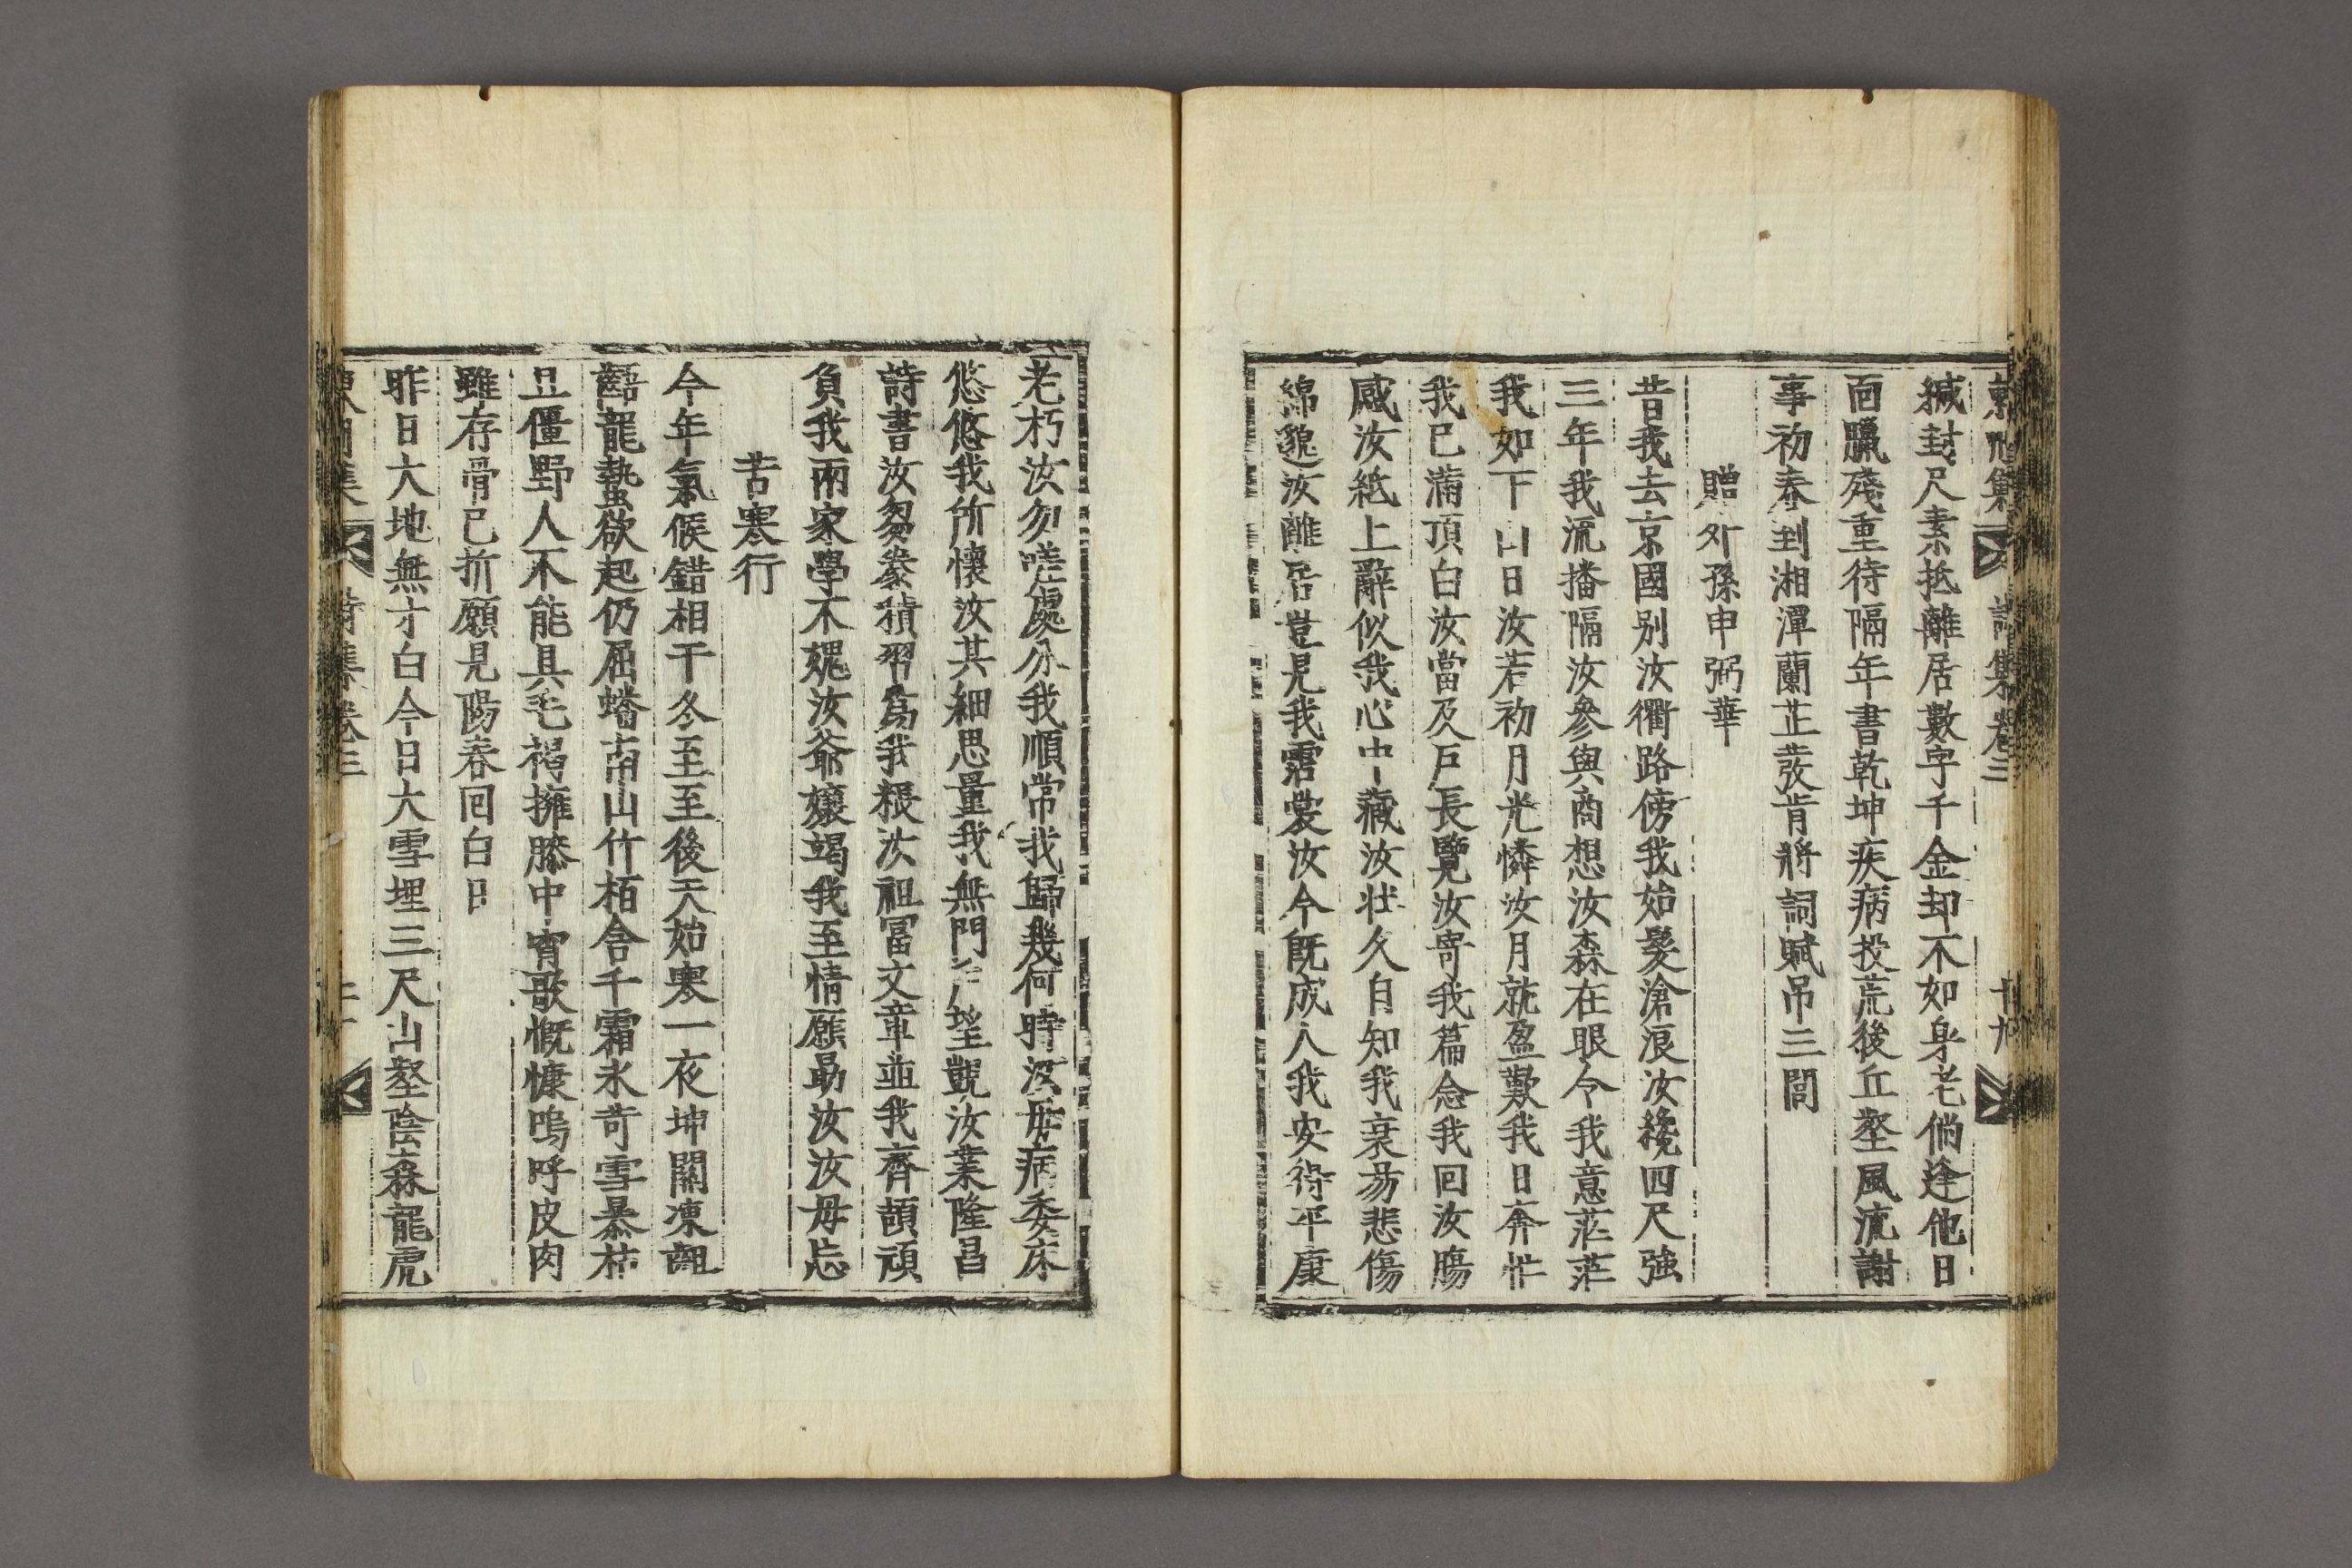 緘封尺素抵離居數字千金却不如身老倘逢他日
面臘殘重待隔年書乾坤疾病投荒後丘壑風流謝
事初春到湘潭蘭芷發肯將詞賦吊三閭
贈外孫申弼華
昔我去京國別汝衢路傍我始髮滄浪汝纔四尺強
三年我流播隔汝參與商想汝森在眼令我意茫茫
我如下山日汝若初月光憐汝月就盈歎我日奔忙
我已滿頂白汝當及戶長覽汝寄我篇念我回汝腸
感汝紙上辭似我心中藏汝壯久自知我衰易悲傷
綿邈汝離居豈見我霑裳汝今旣成人我安得平康
老朽汝勿嗟處分我順常我歸幾何時汝母病委床
悠悠我所懷汝其細思量我無門戶望覬汝業隆昌
詩書汝芻豢積習爲我糧汝祖富文章並我齊頡頏
負我兩家學不媿汝爺孃竭我至情願勗汝汝毋忘
苦寒行
今年氣候錯相干冬至至後天始寒一夜坤關凍齟
齬龍蟄欲起仍屈蟠南山竹栢含千霜氷苛雪暴枯
且僵野人不能具毛褐擁膝中宵歌慨慷嗚呼皮肉
雖存骨已折願見陽春回白日
昨日大地無寸白今日大雪埋三尺山壑陰森龍虎
詩集卷三